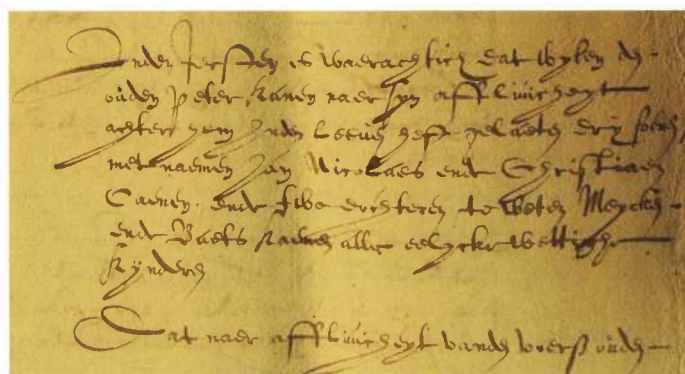 Inden Iersten is waerachtich dat wylen den
ouden Peter Kanen naer syn afflivicheyt
achter hem inden Leeven heft gelaeten dry soenen
met naemen Jan Nicolaes ende Christiaen
Caenen. ende twe dochteren to weten Meycken
ende Baets Kaenen alle eelycke wettighe
Kynderen
Dat naer afflivicheyt vanden voerß ouden